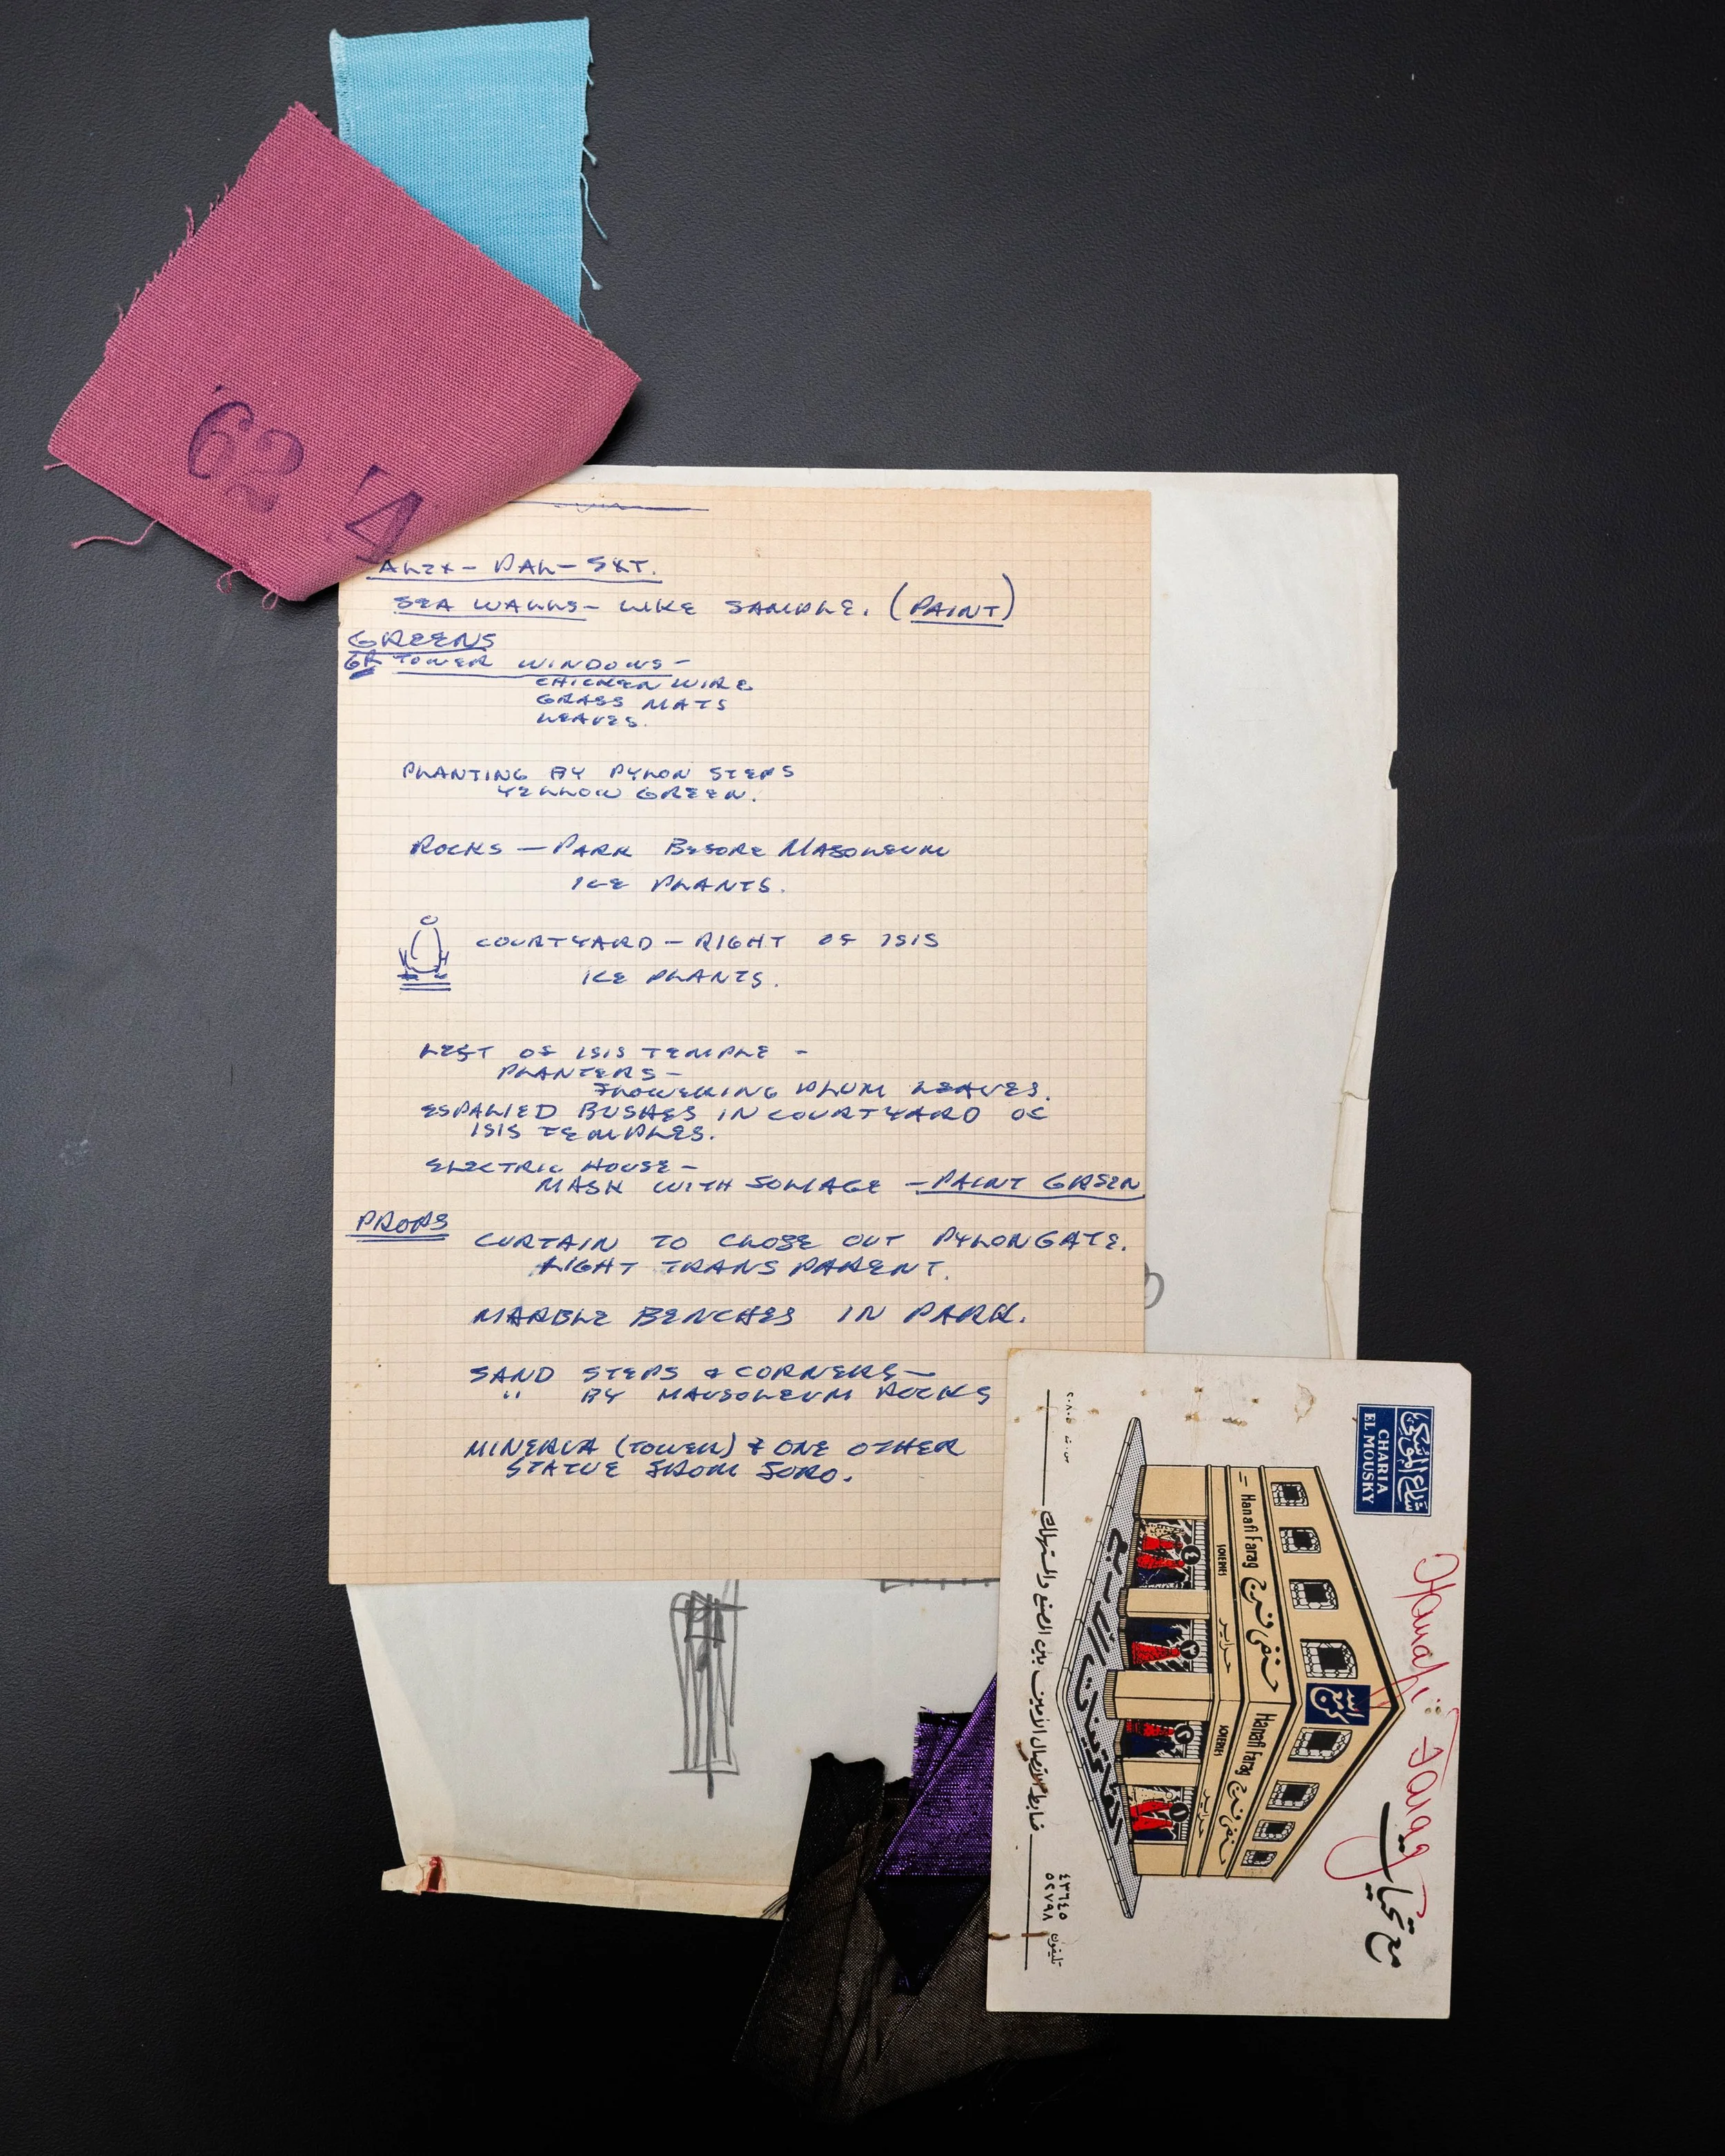 '62 '4
ALEX - PAL - EXT.
SEA WALLS - LIKE SAMPLE. (PAINT)
GREENS
GR TOWER WINDOWS -
CHICKEN WIRE
GRASS MATS
LEAVES.
PLANTING BY PYLON STEPS
YELLOW GREEN.
ROCKS - PARK BEFORE MASOLEUM
ICE PLANTS.
COURTYARD - RIGHT OF ISIS
ICE PLANTS.
LEFT OF ISIS TEMPLE -
PLANTERS -
FLOWERING PLUM LEAVES.
ESPALIED BUSHES IN COURTYARD OF
ISIS TEMPLES.
ELECTRIC HOUSE -
MASK WITH FOLIAGE - PAINT GREEN
PROPS
CURTAIN TO CLOSE OUT PYLON GATE.
LIGHT TRANSPARENT.
MARBLE BENCHES IN PARK.
SAND STEPS & CORNERS -
" BY MAUSOLEUM ROCKS
MINERVA (TOWER) & ONE OTHER
STATUE FROM FORO.
شارع الموسكى
CHARIA
EL MOUSKY
Hanafi Farag
مع تحيات
Hanafi Farag حنفى فرج
Hanafi Farag حنفى فرج
SOIERIES حراير
SOIERIES حراير
٤ ٣ ٢ ١
ضابط الاتصال الأمين بين الصنع والمستهلك
س.ت ٢٠٨٠٥
تليفون ٤٣٦٤٥
٥٢٧٩٨